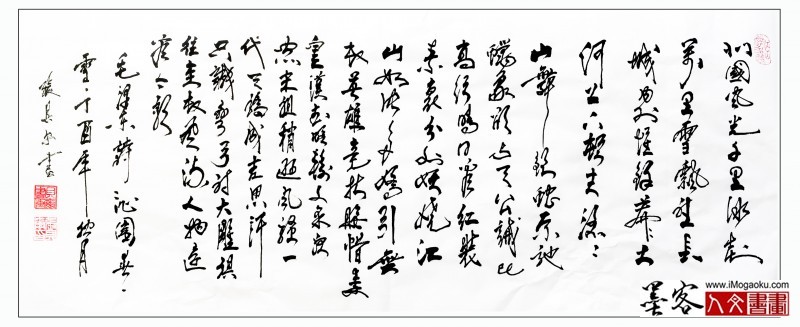 北國風光千里冰封
萬里雪飄望長
城内外惟餘莽莽大
河上下頓失滔滔
山舞銀蛇原馳
蠟象欲與天公試比
高須晴日看紅裝
素裹分外妖嬈江
山如此多嬌引無
數英雄競折腰惜秦
皇漢武略輸文采唐
宗宋祖稍遜風騷一
代天驕成吉思汗
只識彎弓射大雕俱
往矣數風流人物還
看今朝
毛澤東詞沁園春
雪丁酉年月
書
www.iMogaoku.com
墨客
人文書畫